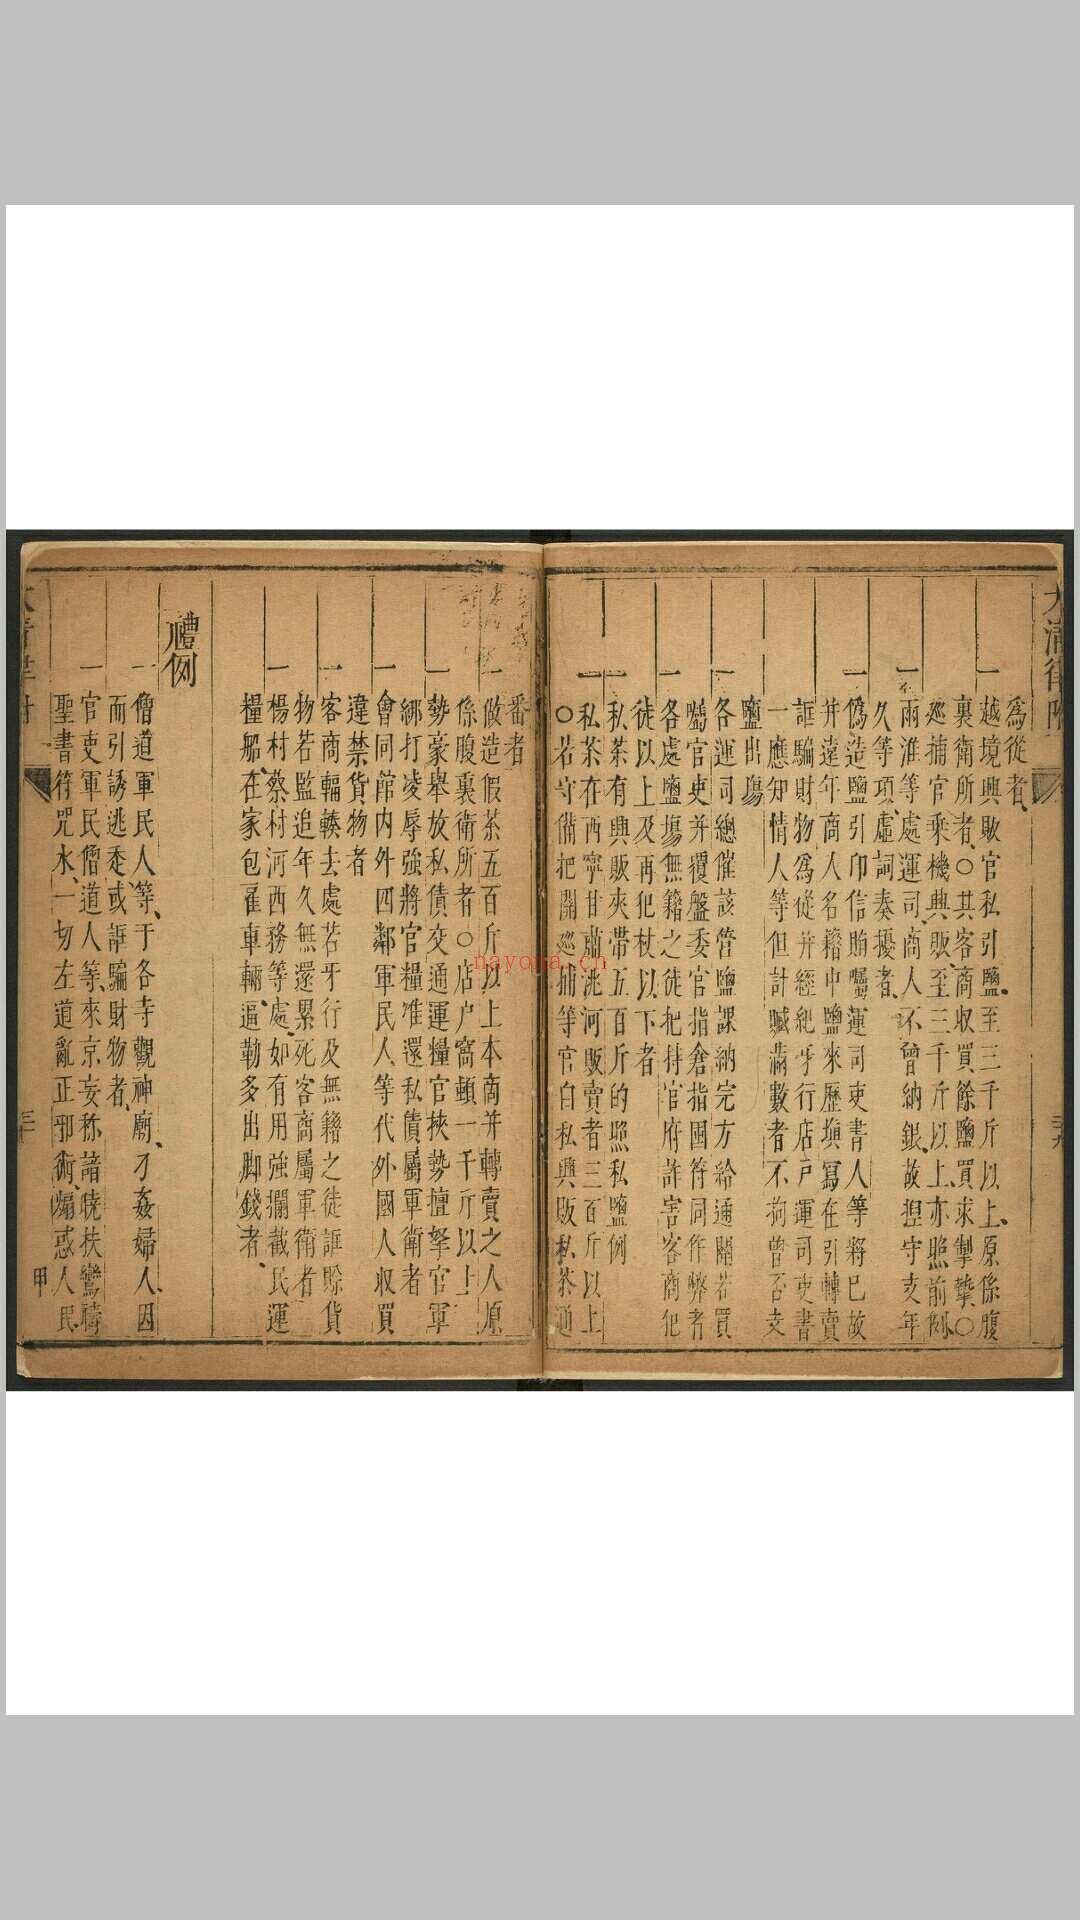 大清律附
為從者
一越境興販官私引鹽至三千斤以上原係腹
裏衛所者○其客商收買餘鹽買求掣摯○
巡捕官乘機興販至三千斤以上亦照前例
一兩淮等處運司商人不曾納銀故捏守支年
久等項虛詞奏擾者
一偽造鹽引印信賄囑運司吏書人等將已故
并遠年商人名籍中鹽來歷填寫在引轉賣
誆騙財物為從并經紀牙行店戶運司吏書
一應知情人等但計贓滿數者不拘曾否支
鹽出場
一各運司總催該管鹽課納完方給通關若買
囑官吏并覆盤委官指倉指囤符同作弊者
一各處鹽場無籍之徒把持官府詐害客商犯
徒以上及再犯杖以下者
一私茶有興販夾帶五百斤的照私鹽例
一私茶在西寧甘肅洮河販賣者三百斤以上
○若守備把關巡捕等官自私興販私茶通
三十九
番者
一做造假茶五百斤以上本商并轉賣之人原
係腹裏衛所者○店户窩頓一千斤以上
一勢豪舉放私債交通運糧官挾勢擅拏官軍
綁打凌辱強將官糧准還私債屬軍衛者
一會同館內外四鄰軍民人等代外國人收買
違禁貨物者
一客商輻輳去處若牙行及無籍之徒誆賒貨
物若監追年久無還累死客商屬軍衛者
一楊村蔡村河西務等處如有用強攔截民運
糧船在家包雇車輛逼勒多出脚錢者
禮例
一僧道軍民人等于各寺觀神廟刁姦婦人因
而引誘逃走或誆騙財物者
一官吏軍民僧道人等來京妄稱諳曉扶鸞禱
聖書符咒水一切左道亂正邪術煽惑人民
甲